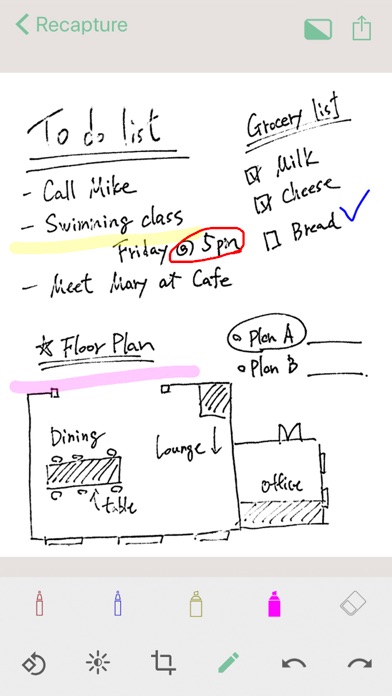 Recapture
To do list
- Call Mike
- Swimming class
Friday @ 5pm
- Meet Mary at Cafe
Grocery list
Milk
Cheese
Bread
☆ Floor Plan
Plan A
Plan B
Dining
table
Lounge ↓
office